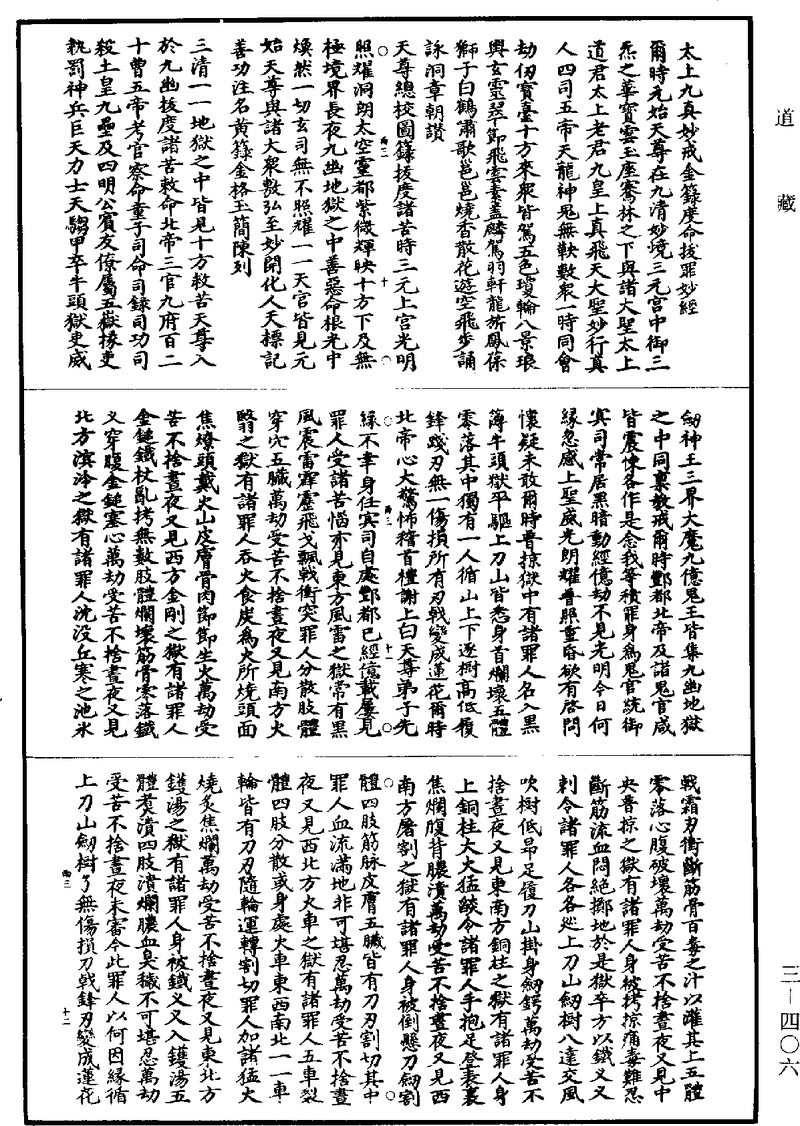 道藏
三—四〇六
太上九真妙戒金籙度命拔罪妙經
爾時元始天尊在九清妙境三元宮中御三
炁之華寶雲玉座騫林之下與諸大聖太上
道君太上老君九皇上真飛天大聖妙行真
人四司五帝天龍神鬼無鞅數衆一時同會
劫仞寶臺十方來衆皆駕五色瓊輪八景琅
輿玄靈翠節飛雲素蓋麟駕羽軒龍旂鳳葆
獅子白鶴肅歌邕邕燒香散花遊空飛步誦
詠洞章朝讚
天尊總校圖籙拔度諸苦時三元上宮光明
照耀洞朗太空靈都紫微輝映十方下及無
極境界長夜九幽地獄之中善惡命根光中
煥然一切玄司無不照耀一一天宮皆見元
始天尊與諸大衆敷弘至妙開化人天標記
善功注名黃籙金格玉簡陳列
三清一一地獄之中皆見十方救苦天尊入
於九幽拔度諸苦敕命北帝三官九府百二
十曹五帝考官察命童子司命司錄司功司
殺土皇九壘及四明公賓友僚屬五嶽掾吏
執罰神兵巨天力士天騶甲卒牛頭獄吏威
劒神王三界大魔九億鬼王皆集九幽地獄
之中同稟教戒爾時酆都北帝及諸鬼官咸
皆震悚各作是念我等積罪身為鬼官統御
冥司常居黑暗動經億劫不見光明今日何
緣忽感上聖威光朗耀普照重昏欲有啓問
懷疑未敢爾時普掠獄中有諸罪人名入黑
簿牛頭獄卒驅上刀山皆悉身首爛壞五體
零落其中獨有一人循山上下逐樹高低履
鋒踐刃無一傷損所有刃戟變成蓮花爾時
北帝心大驚怖稽首禮謝上白天尊弟子先
緣不幸身任冥司自處酆都已經億載屢見
罪人受諸苦惱亦見東方風雷之獄常有黑
風震雷霹靂飛戈飄戟衝突罪人分散肢體
穿穴五臟萬劫受苦不捨晝夜又見南方火
翳之獄有諸罪人吞火食炭為火所燒頭面
焦燎頭戴火山皮膚骨肉節節生火萬劫受
苦不捨晝夜又見西方金剛之獄有諸罪人
金鎚鐵杖亂拷無數肢體爛壞筋骨零落鐵
义穿腹金鎚塞心萬劫受苦不捨晝夜又見
北方溟泠之獄有諸罪人沈没丘寒之池氷
戟霜刃衝斷筋骨百毒之汁以灌其上五體
零落心腹破壞萬劫受苦不捨晝夜又見中
央普掠之獄有諸罪人身被拷掠痛毒難忍
斷筋流血悶絕擲地於是獄卒方以鐵义义
刺令諸罪人各各𢌞上刀山劒樹八達交風
吹樹低昂足履刀山掛身劒鍔萬劫受苦不
捨晝夜又見東南方銅柱之獄有諸罪人身
上銅柱大火猛𦦨令諸罪人手抱足登表裏
焦爛腹背膿潰萬劫受苦不捨晝夜又見西
南方屠割之獄有諸罪人身被倒懸刀劒割
體四肢筋脉皮膚五臟皆有刀刃割切其中
罪人血流滿地非可堪忍萬劫受苦不捨晝
夜又見西北方火車之獄有諸罪人五車裂
體四肢分散或身處火車東西南北一一車
輪皆有刀刃隨輪運轉割切罪人加諸猛火
燒炙焦爛萬劫受苦不捨晝夜又見東北方
鑊湯之獄有諸罪人身被鐵义义入鑊湯五
體煑潰四肢潰爛膿血臭穢不可堪忍萬劫
受苦不捨晝夜未審今此罪人以何因緣循
上刀山劒樹了無傷損刀戟鋒刃變成蓮花